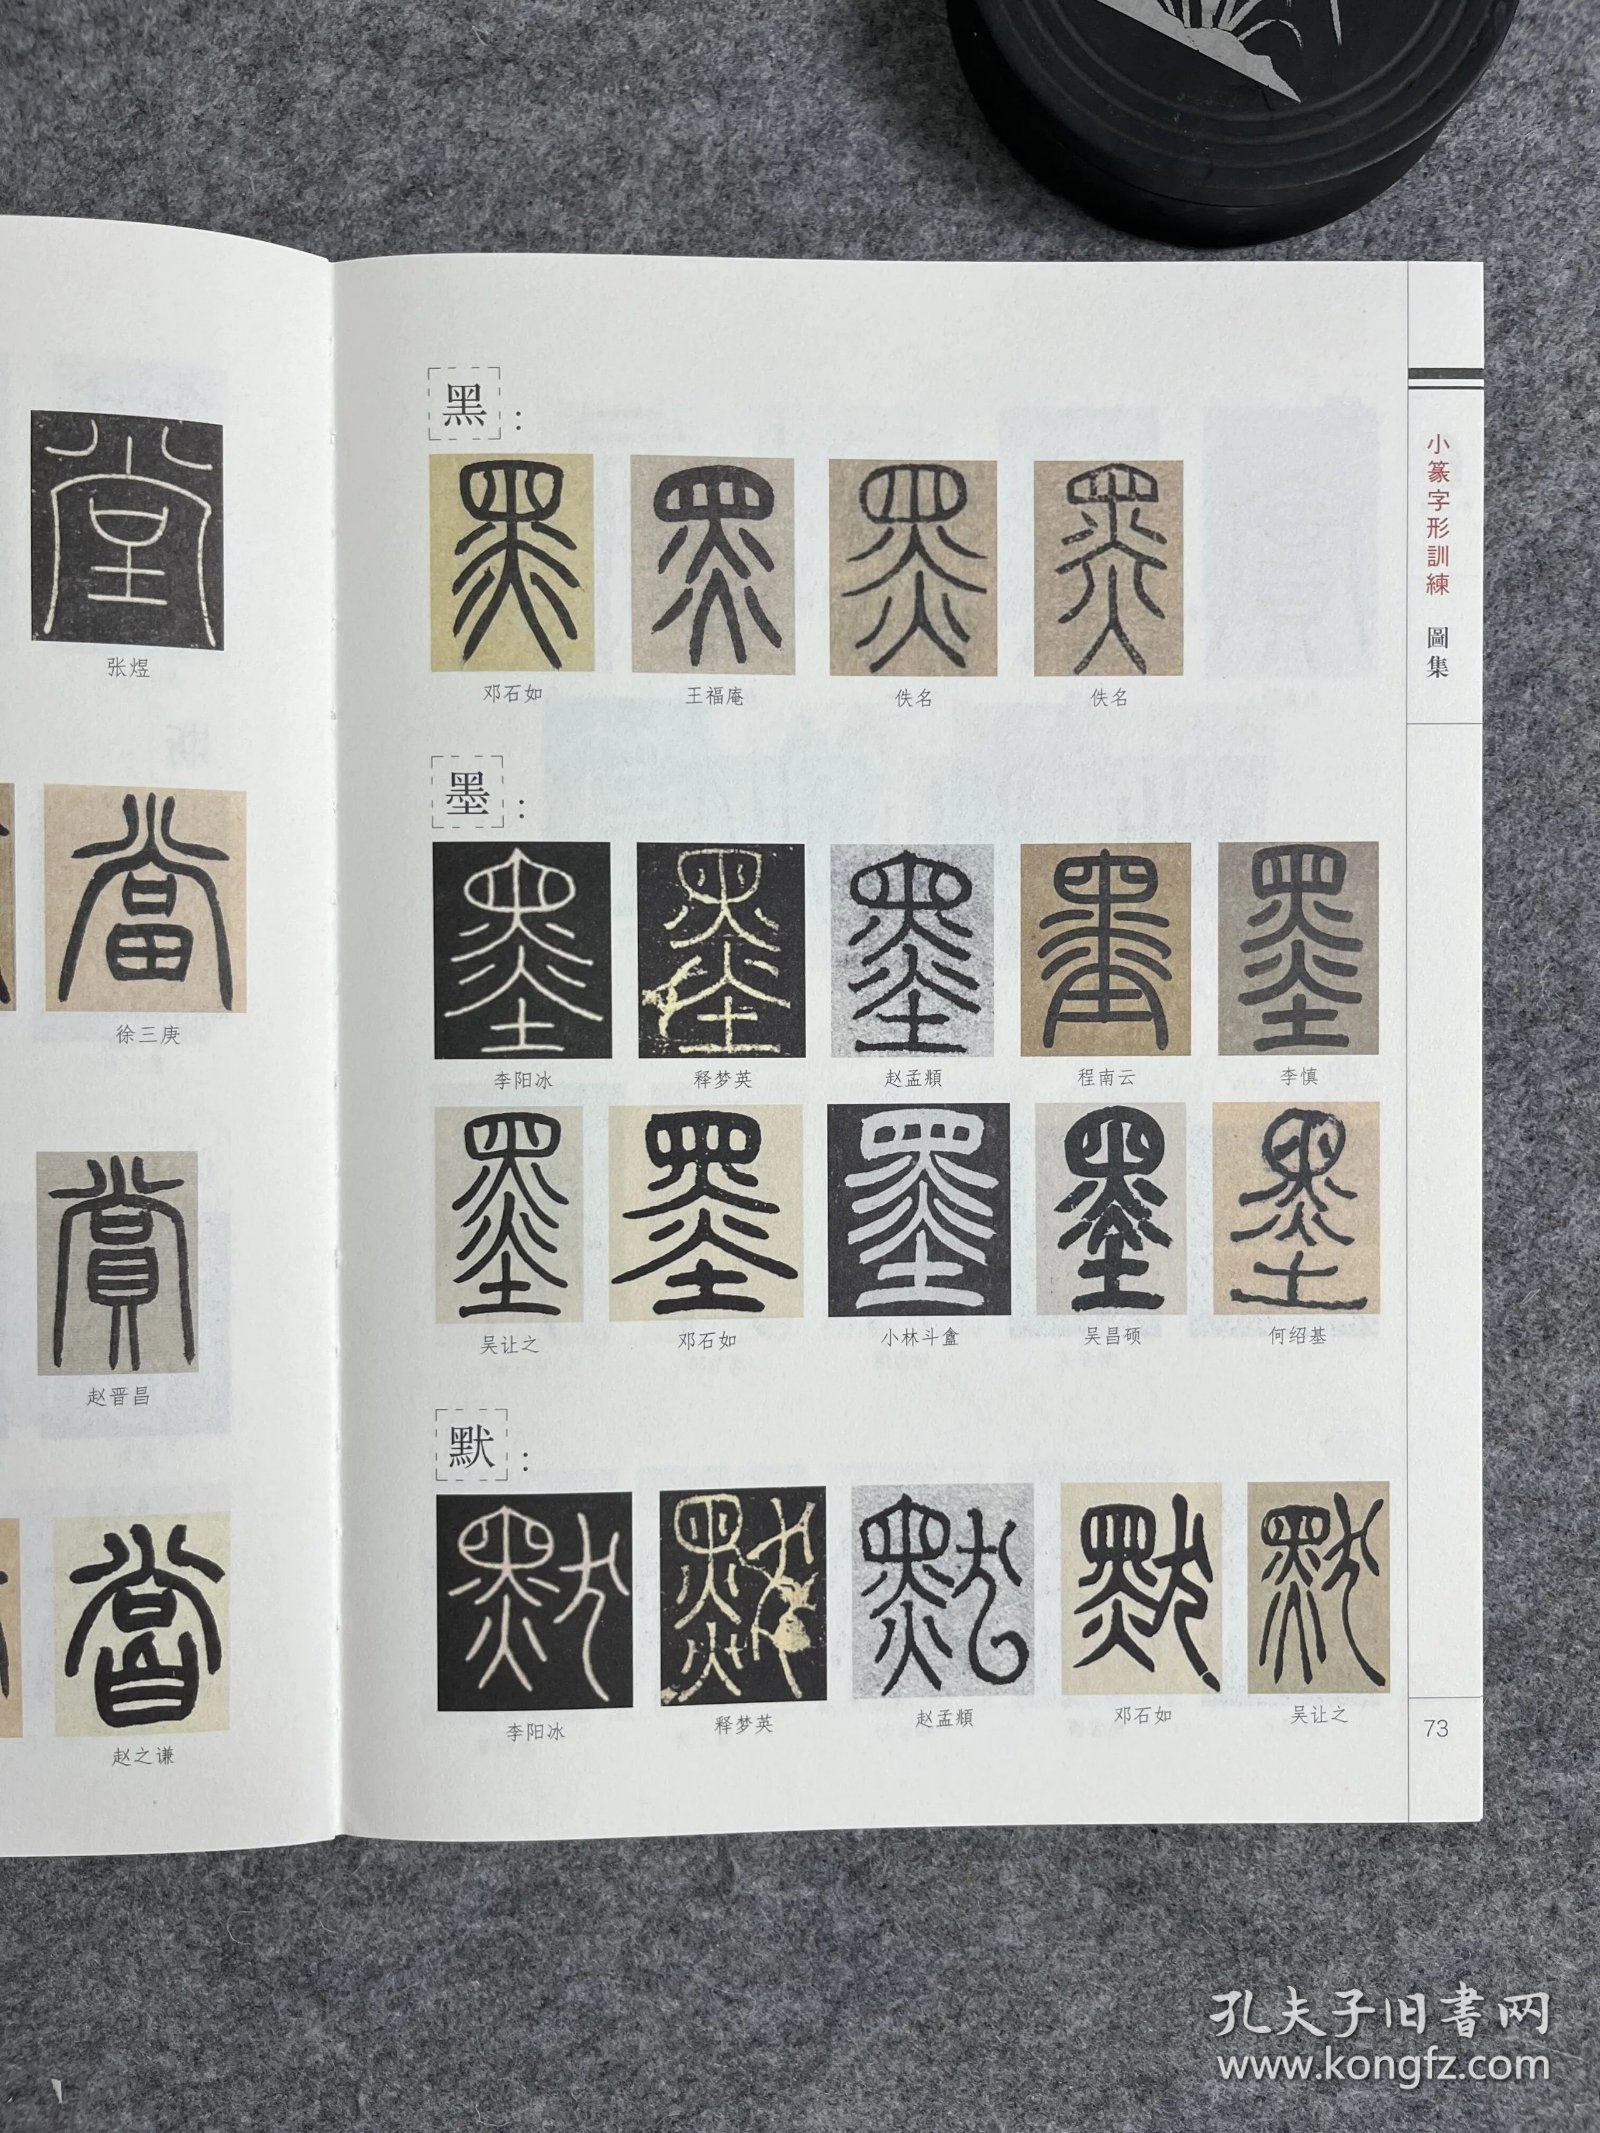 堂
张煜
當
徐三庚
賞
赵晋昌
嘗
赵之谦
黑：
黑 黑 黑 黑
邓石如 王福庵 佚名 佚名
墨：
墨 墨 墨 墨 墨
李阳冰 释梦英 赵孟頫 程南云 李慎
墨 墨 墨 墨 墨
吴让之 邓石如 小林斗盦 吴昌硕 何绍基
默：
默 默 默 默 默
李阳冰 释梦英 赵孟頫 邓石如 吴让之
小篆字形訓練 圖集
73
孔夫子旧书网
www.kongfz.com